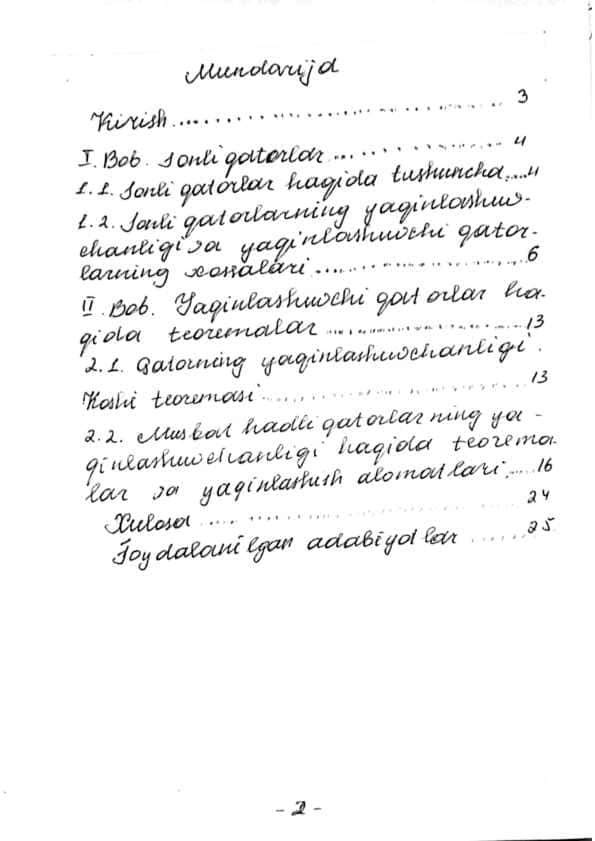 Mundarija
Kirish ................................ 3
I. Bob. Sonli qatorlar .................. 4
1.1. Sonli qatorlar haqida tushuncha.....4
1.2. Sonli qatorlarning yaqinlashuv-
chanligi va yaqinlashuvchi qator-
larning xossalari .....................6
II Bob. Yaqinlashuvchi qatorlar ha-
qida teoremalar .....................13
2.1. Qatorning yaqinlashuvchanligi.
Koshi teoremasi ..................... 13
2.2. Musbat hadli qatorlarning ya-
qinlashuvchanligi haqida teorema-
lar va yaqinlashish alomatlari.....16
Xulosa ............................. 24
Foydalanilgan adabiyotlar ...... 25
- 2 -